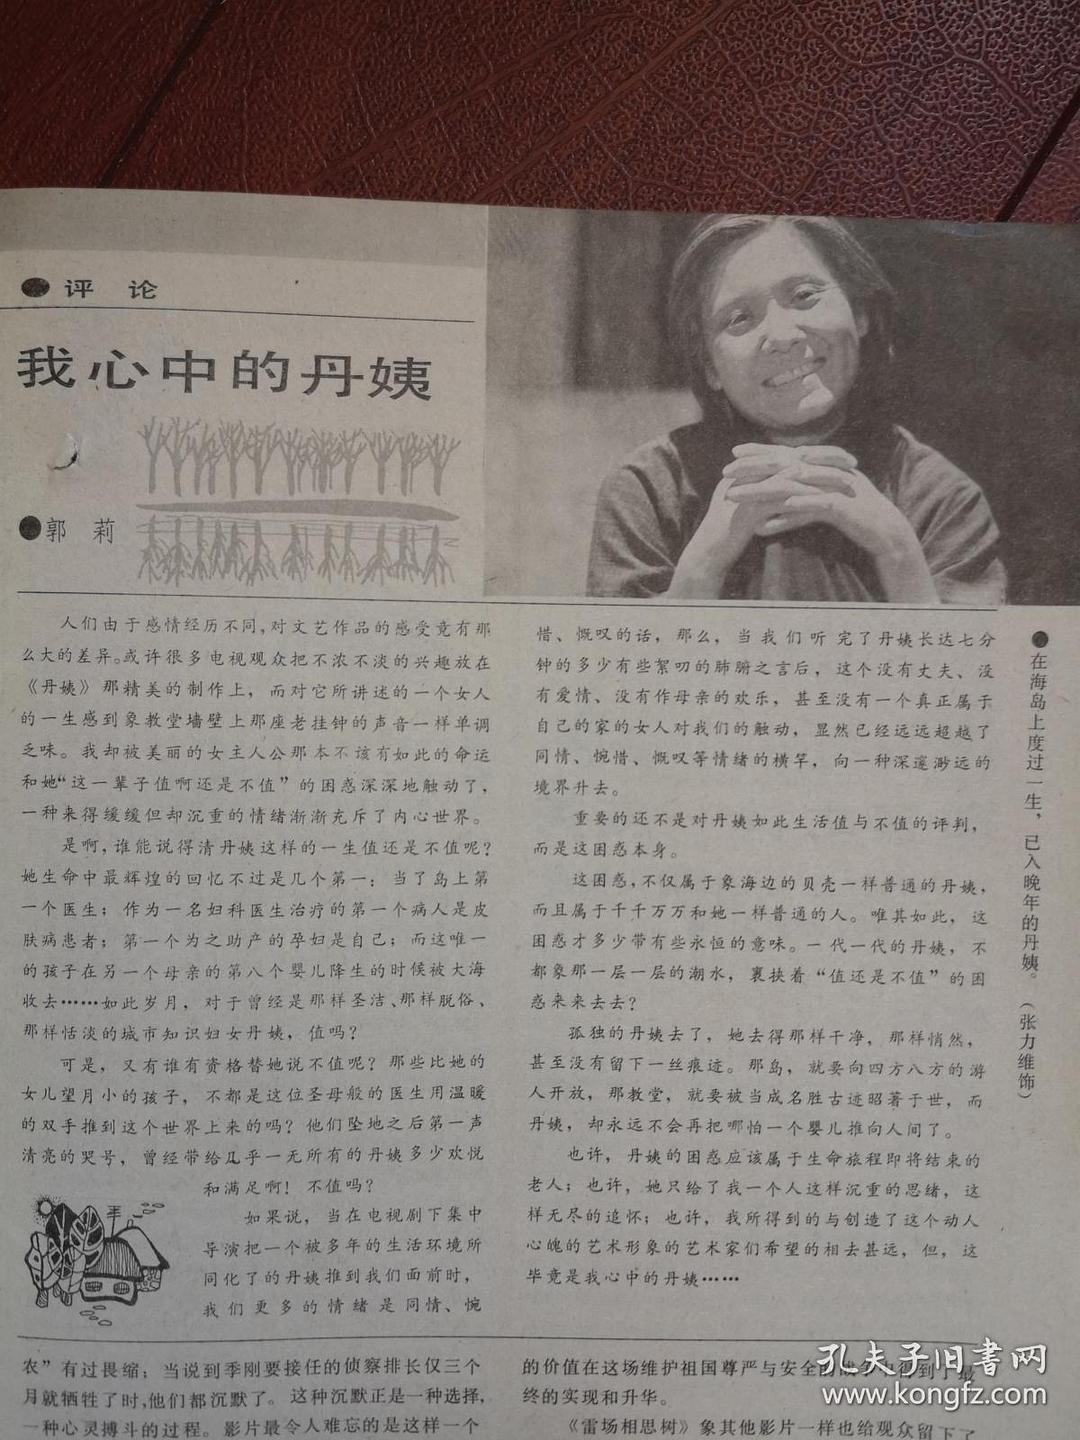 ●评 论
我心中的丹姨
●郭 莉
人们由于感情经历不同,对文艺作品的感受竟有那
么大的差异。或许很多电视观众把不浓不淡的兴趣放在
《丹姨》那精美的制作上，而对它所讲述的一个女人
的一生感到象教堂墙壁上那座老挂钟的声音一样单调
乏味。我却被美丽的女主人公那本不该有如此的命运
和她“这一辈子值啊还是不值”的困惑深深地触动了，
一种来得缓缓但却沉重的情绪渐渐充斥了内心世界。
是啊,谁能说得清丹姨这样的一生值还是不值呢？
她生命中最辉煌的回忆不过是几个第一：当了岛上第
一个医生；作为一名妇科医生治疗的第一个病人是皮
肤病患者；第一个为之助产的孕妇是自己；而这唯一
的孩子在另一个母亲的第八个婴儿降生的时候被大海
收去……如此岁月，对于曾经是那样圣洁、那样脱俗、
那样恬淡的城市知识妇女丹姨，值吗？
可是，又有谁有资格替她说不值呢？那些比她的
女儿望月小的孩子，不都是这位圣母般的医生用温暖
的双手推到这个世界上来的吗？他们坠地之后第一声
清亮的哭号，曾经带给几乎一无所有的丹姨多少欢悦
和满足啊！不值吗？
如果说，当在电视剧下集中
导演把一个被多年的生活环境所
同化了的丹姨推到我们面前时，
我们更多的情绪是同情、惋
惜、慨叹的话，那么，当我们听完了丹姨长达七分
钟的多少有些絮叨的肺腑之言后，这个没有丈夫、没
有爱情、没有作母亲的欢乐，甚至没有一个真正属于
自己的家的女人对我们的触动，显然已经远远超越了
同情、惋惜、慨叹等情绪的横竿，向一种深邃渺远的
境界升去。
重要的还不是对丹姨如此生活值与不值的评判，
而是这困惑本身。
这困惑,不仅属于象海边的贝壳一样普通的丹姨，
而且属于千千万万和她一样普通的人。唯其如此，这
困惑才多少带有些永恒的意味。一代一代的丹姨，不
都象那一层一层的潮水，裹挟着“值还是不值”的困
惑来来去去？
孤独的丹姨去了，她去得那样干净，那样悄然，
甚至没有留下一丝痕迹。那岛，就要向四方八方的游
人开放，那教堂，就要被当成名胜古迹昭著于世，而
丹姨，却永远不会再把哪怕一个婴儿推向人间了。
也许，丹姨的困惑应该属于生命旅程即将结束的
老人；也许，她只给了我一个人这样沉重的思绪，这
样无尽的追怀；也许，我所得到的与创造了这个动人
心魄的艺术形象的艺术家们希望的相去甚远，但，这
毕竟是我心中的丹姨……
●在海岛上度过一生，已入晚年的丹姨。（张力维饰）
农”有过畏缩；当说到季刚要接任的侦察排长仅三个
月就牺牲了时,他们都沉默了。这种沉默正是一种选择,
一种心灵搏斗的过程。影片最令人难忘的是这样一个
的价值在这场维护祖国尊严与安全的战争中得到了最
终的实现和升华。
《雷场相思树》象其他影片一样也给观众留下了
孔夫子旧书网
www.kongfz.com